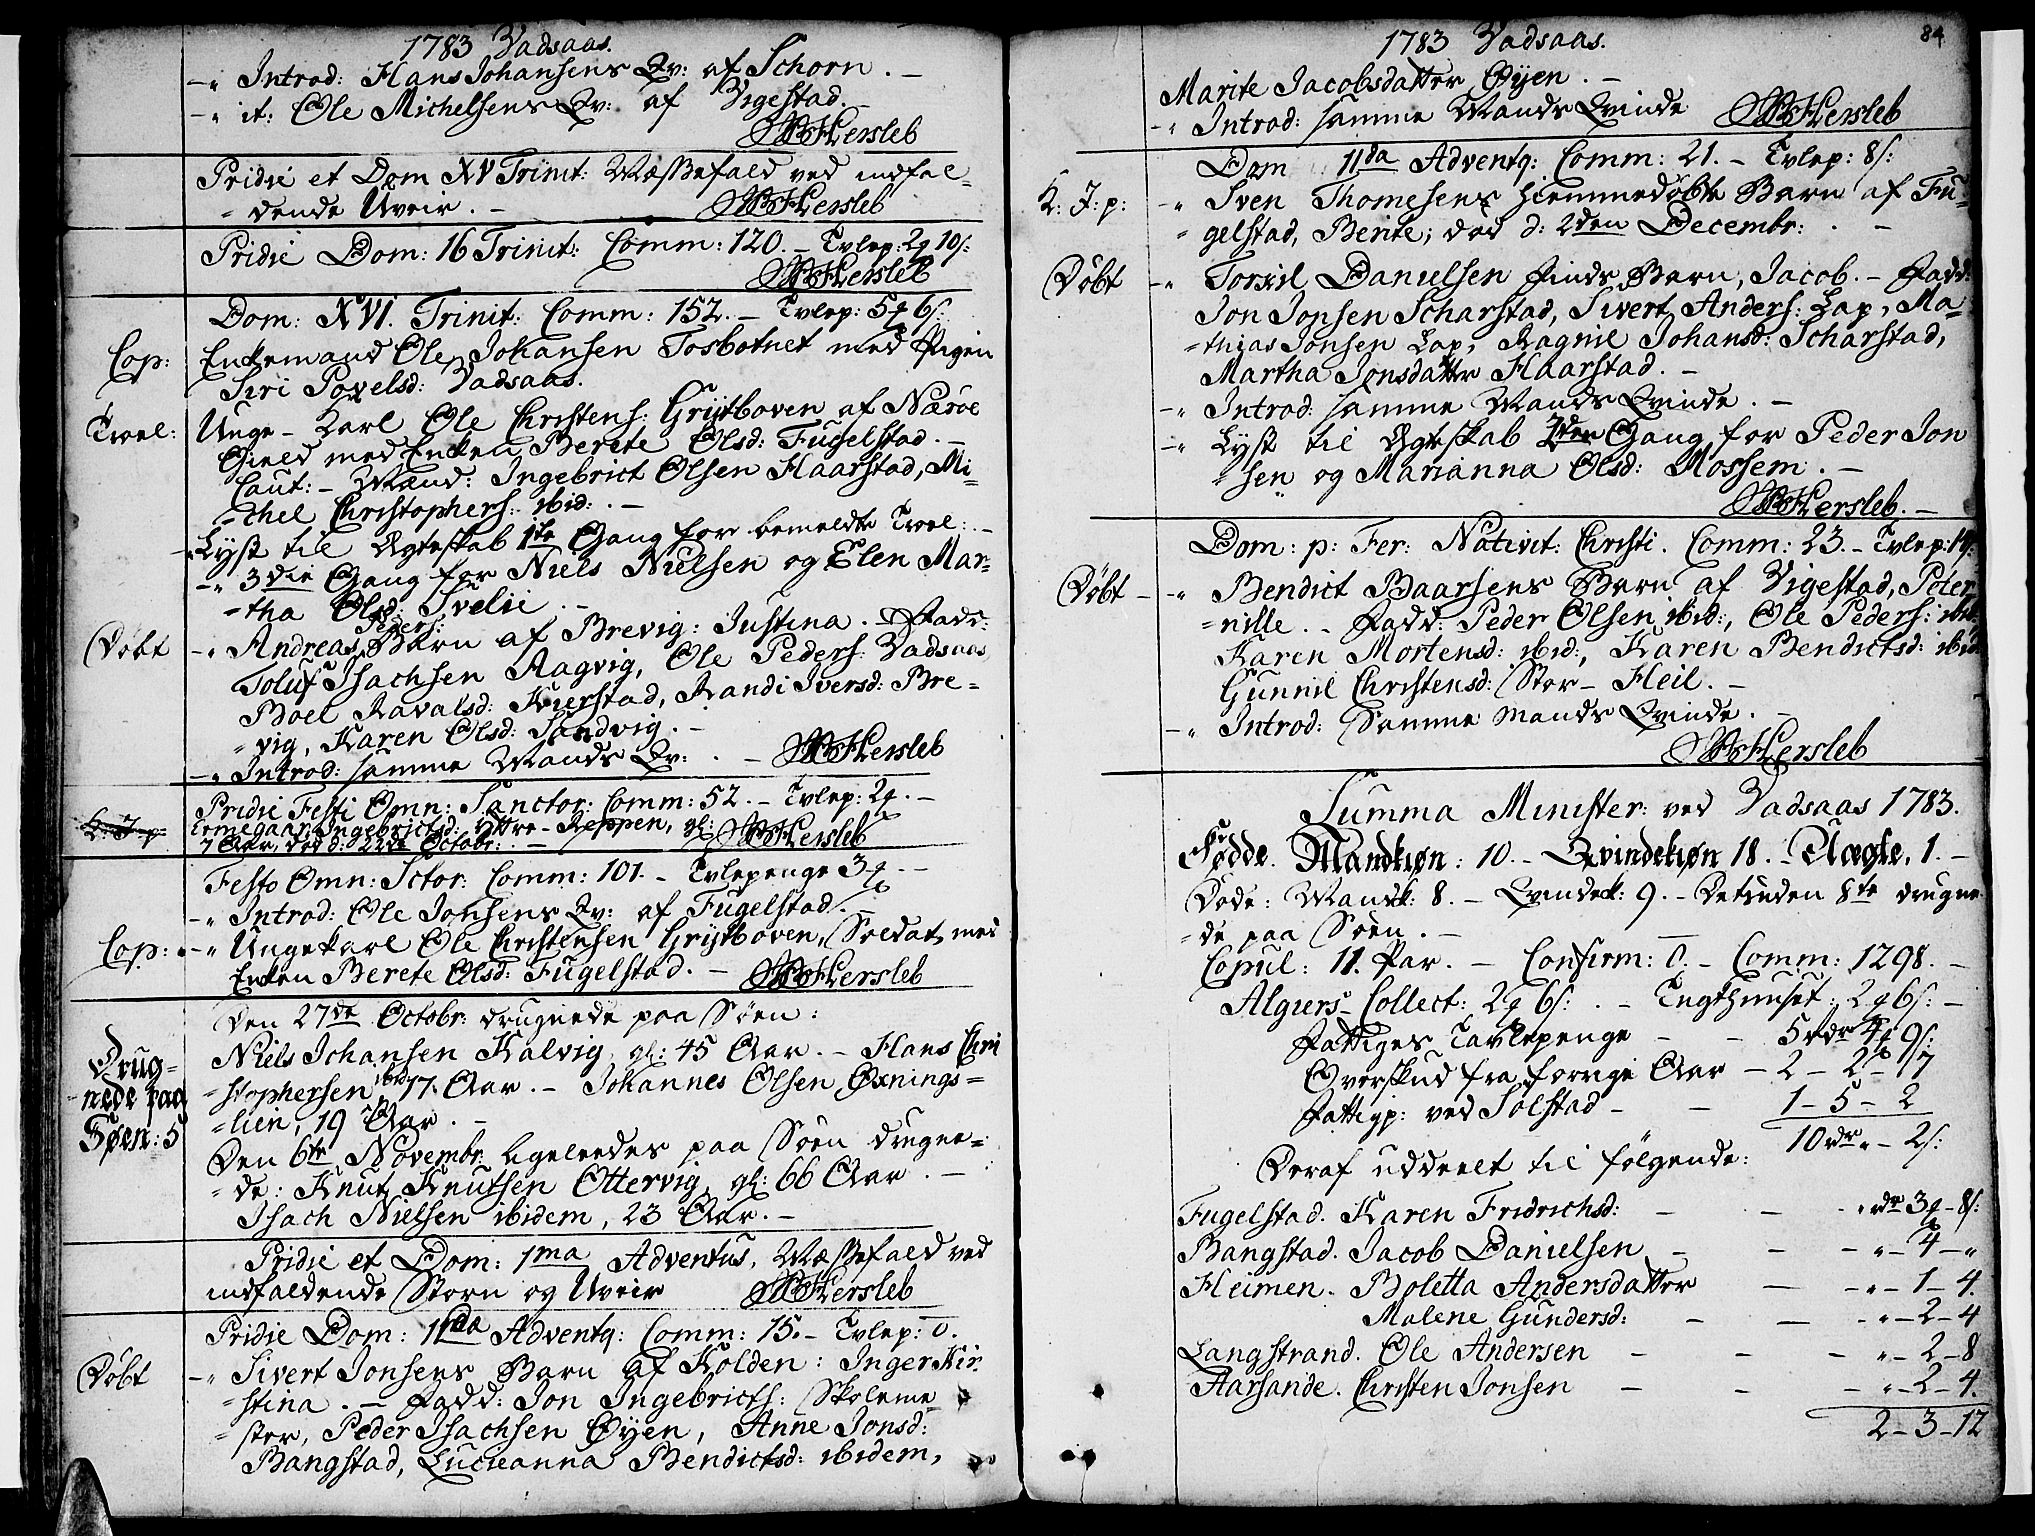 1783 Vadsaas.
-" Introd: Hans Johansens Qv: af Schorn. -
-" it: Ole Michelsens Qv: af Vigestad. -
Hersleb
Pridie et Dom XV Trinit: Mæssefald ved indfal-
-dende Uveir. - Hersleb
Pridie Dom: 16 Trinit: Comm: 120. - Tvlep: 2 10 s:
Hersleb
Dom: XVI. Trinit: Comm: 152. - Tvlep: 5 6 s:
Cop: Enkemand Ole Johansen Tosbotnet med Pigen
Siri Povelsd: Vadsaas.
Troel: Unge-Karl Ole Christens: Grytboven af Nærøe
Gield med Enken Berete Olsd: Fugelstad. -
Caut:- Mænd: Ingebrict Olsen Haarstad, Mi-
-chel Christophers: ibid: . -
-" Lyst til Ægteskab 1te Gang for bemeldte Troel: -
-" 3die Gang for Niels Nielsen og Elen Mar-
-tha Olsd: Svelie. -
Døbt -" Andreas Peders: Barn af Brevig: Justina. - Fadd:
Toluf Isachsen Aagvig, Ole Peders: Vadsaas,
Boel Ravalsd: Kierstad, Randi Iversd: Bre-
-vig, Karen Olsd: Sandvig. -
-" Introd: samme Mands Qv: . - Hersleb
Pridie Festi Omn: Sanctor: Comm: 52. - Tvlep: 2 . -
H: J: p: Ermegaar Ingebrictsd: Yttre-Reppen, gl:
7 Aar, død d: 22de Octobr: . - Hersleb
Festo Omn: Sctor: Comm: 101. - Tvlepenge 3 . -
-" Introd: Ole Jonsens Qv: af Fugelstad. -
Cop: -" Ungekarl Ole Christensen Grytboven, Soldat, med
Enken Berete Olsd: Fugelstad. - Hersleb
Den 27de Octobr: drugnede paa Søen:
Drug-
nede paa
Søen: 5
Niels Johansen Kalvig, gl: 45 Aar. - Hans Chri
-stophersen ibid 17. Aar. - Johannes Olsen Øxnings-
-lien, 19 Aar. -
Den 6te Novembr: ligeleedes paa Søen drugne-
-de: Knut Knutsen Ottervig, gl: 66 Aar. -
Isach Nielsen ibidem, 23 Aar. -
Pridie et Dom: 1ma Adventus, Mæssefald ved
indfaldende Storm og Uveir Hersleb
Pridie Dom: 11da Adventq: Comm: 15. - Tvlep: 0.
Døbt -" Sivert Jonsens Barn af Kolden: Inger Kir-
-stina. - Fadd: Jon Ingebricts: Skoleme
-ster, Peder Isachsen Øyen, Anne Jonsd:
Bangstad, Lucieanna Bendictsd: ibidem,
84
1783 Vadsaas.
Marite Jacobsdatter Øyen. -
-" Introd: samme Mands Qvinde Hersleb
Dom 11da Adventq: Comm: 21. - Tvlep: 8 s:
H: J: p: -" Sven Thomesens hiemmedøbte Barn af Fu-
-gelstad, Berite; død d: 2den Decembr: . -
Døbt -" Torkil Danielsen Finds Barn, Jacob. - Fadd:
Jon Jonsen Scharstad, Sivert Anders: Lap, Ma-
-thias Jonsen Lap, Ragnil Johansd: Scharstad,
Martha Jonsdatter Haarstad. -
-" Introd: samme Mands Qvinde. -
-" Lyst til Ægteskab 2den Gang for Peder Jon
-sen og Marianna Olsd: Mossem. -
Hersleb. -
Dom: p: Fer: Nativit: Christi. Comm: 23. - Tvlep: 14 s:
Døbt - -" Bendict Baarsens Barn af Vigestad, Peter-
-nille. - Fadd: Peder Olsen ibid:, Ole Peders: ibid:
Karen Mortensd: ibid:, Karen Bendictsd: ibid:
Gunnil Christensd: Stor-Heil. -
-" Introd: Samme Mands Qvinde. -
Hersleb
Summa Minister: ved Vadsaas 1783.
Fødde. Mandkiøn: 10. - Qvindekiøn 18. - Uægte, 1. -
Døde: Mandk: 8. - Qvindek: 9. - Desuden 8te drugne-
-de paa Søen. -
Copul: 11. Par. - Confirm: 0. - Comm: 1298. -
Algiers-Collect: 2 6 s: . - Tugthuuset: 2 6 s: -
Fattiges Tavlepenge - - 5 rdr 4 9 s:
Overskud fra forrige Aar - 2 - 2 - 7
Fattigp: ved Solstad - - 1 - 5 - 2
10 rdr " - 2 s:
Deraf uddeelt til følgende:
Fugelstad. Karen Fridrichsd: - - " dr 3 - 8 s:
Bangstad. Jacob Danielsen - - - " - 4 - "
Heimen. Boletta Andersdatter - - " - 1 - 4.
Malene Gundersd: - - - " - 2 - 4
Langstrand. Ole Andersen - - - " - 2 - 8
Aarsande. Christen Jonsen - - - " - 2 - 4.
2 - 3 - 12